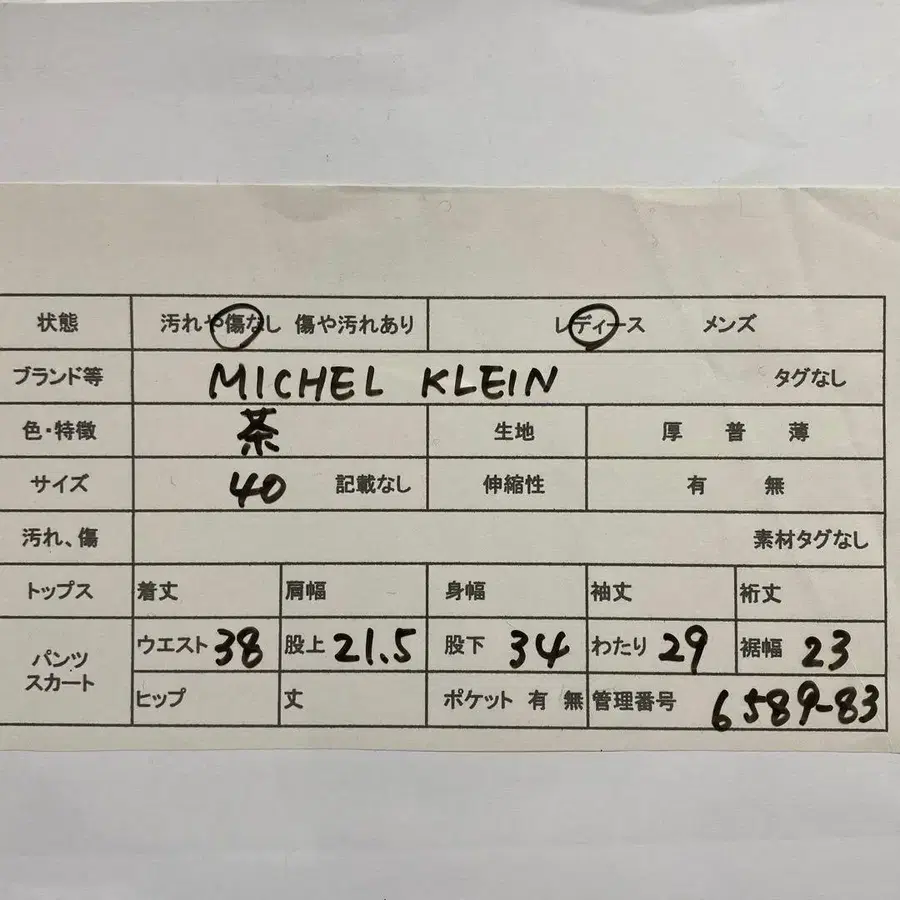 状態 汚れや傷なし 傷や汚れあり レディース メンズ
ブランド等 MICHEL KLEIN タグなし
色・特徴 茶 生地 厚 普 薄
サイズ 40 記載なし 伸縮性 有 無
汚れ、傷 素材タグなし
トップス 着丈 肩幅 身幅 袖丈 裄丈
パンツ スカート ウエスト 38 股上 21.5 股下 34 わたり 29 裾幅 23
ヒップ 丈 ポケット 有 無 管理番号 6589-83